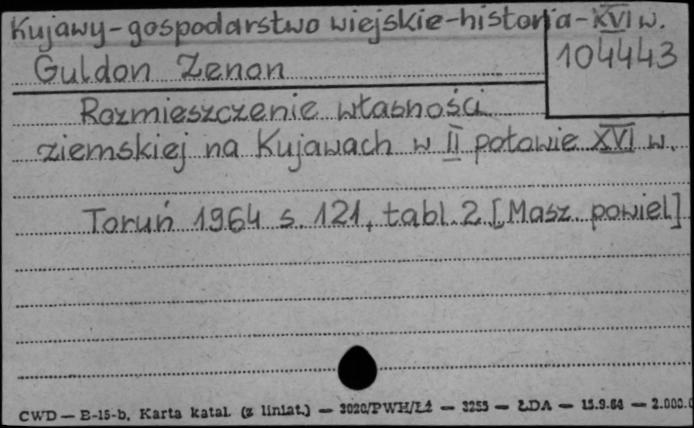 Kujawy-gospodarstwo wiejskie-historia-XVI w.
104443
Guldon Zenon
Rozmieszczenie własności
ziemskiej na Kujawach w II połowie XVI w.
Toruń 1964 s. 121, tabl. 2 [Masz. powiel]
CWD — E-15-b, Karta katal. (z liniat.) — 3020/PWH/Łż — 3255 — ŁDA — 15.9.64 — 2.000.0